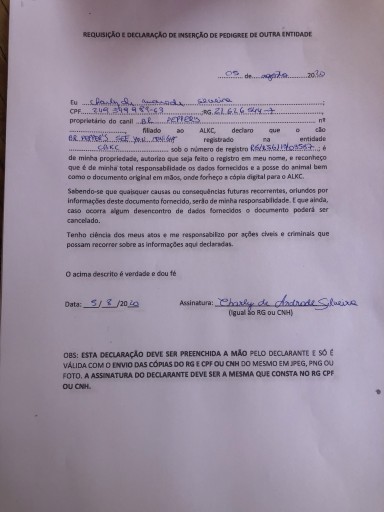 REQUISIÇÃO E DECLARAÇÃO DE INSERÇÃO DE PEDIGREE DE OUTRA ENTIDADE
05 de agosto 2020
Eu Charly de Andrade Silveira;
CPF RG
proprietário do canil BR PEPPERS nº
, filiado ao ALKC, declaro que o cão
BR PEPPER'S SEE YOU registrado na entidade
CBKC sob o número de registro ; é
de minha propriedade, autorizo que seja feito o registro em meu nome, e reconheço
que é de minha total responsabilidade os dados fornecidos e a posse do animal bem
como o documento original em mãos, onde forneço a cópia digital para o ALKC.
Sabendo-se que quaisquer causas ou consequências futuras recorrentes, oriundos por
informações deste documento fornecido, serão de minha responsabilidade. E que ainda,
caso ocorra algum desencontro de dados fornecidos o documento poderá ser
cancelado.
Tenho ciência dos meus atos e me responsabilizo por ações cíveis e criminais que
possam recorrer as informações aqui declaradas.
O acima descrito é verdade e dou fé
Data: 5/8/2020 Assinatura: Charly de Andrade Silveira
(Igual ao RG ou CNH)
OBS: ESTA DECLARAÇÃO DEVE SER PREENCHIDA A MÃO PELO DECLARANTE E SÓ É
VÁLIDA COM O ENVIO DAS CÓPIAS DO RG E CPF OU CNH DO MESMO EM JPEG, PNG OU
FOTO. A ASSINATURA DO DECLARANTE DEVE SER A MESMA QUE CONSTA NO RG CPF
OU CNH.